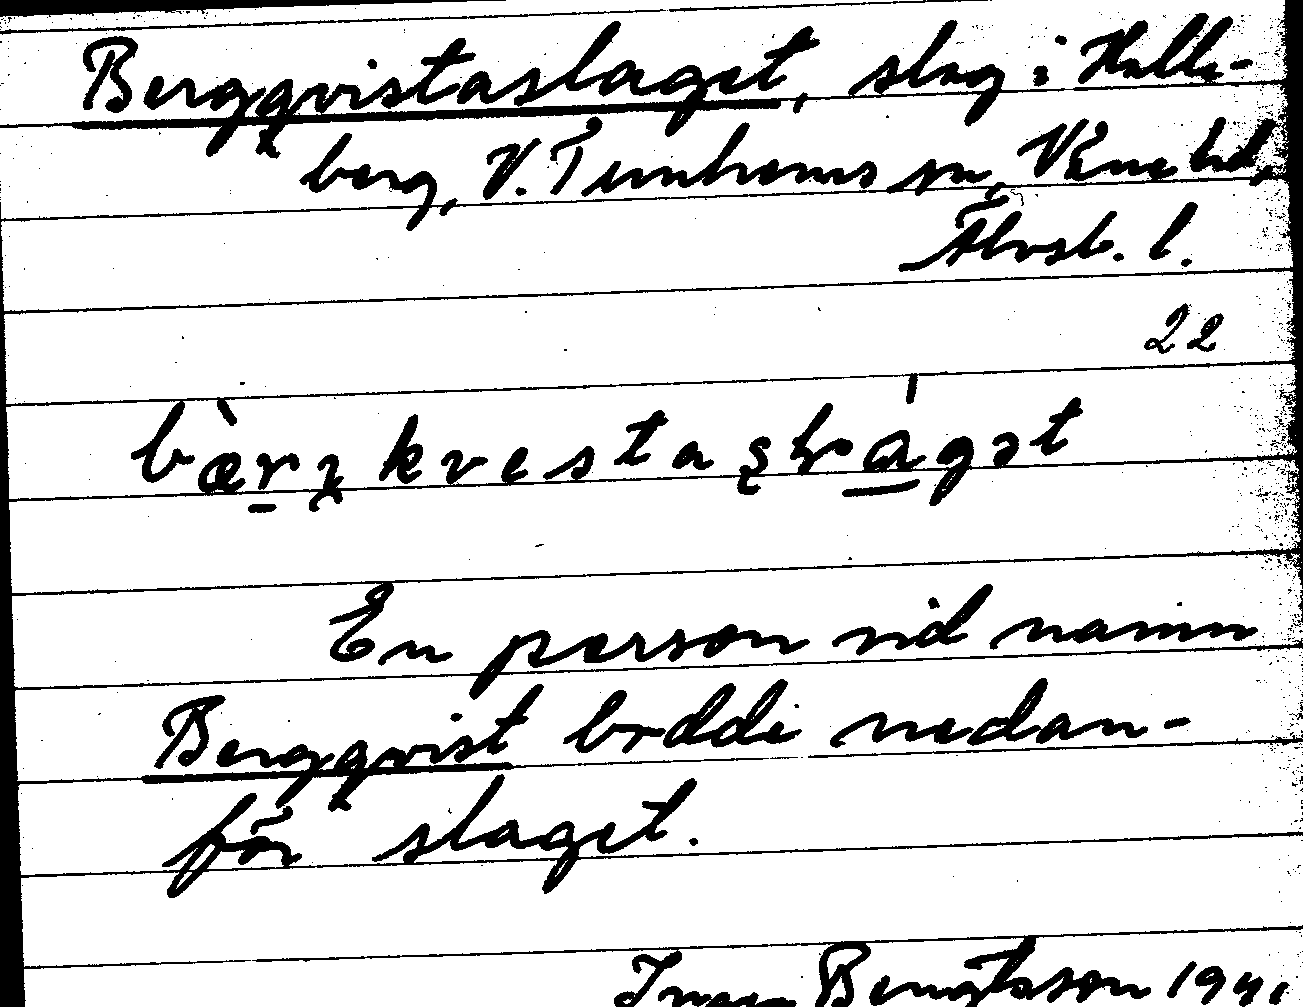 Bergqvistaslaget, slag i Halle-
berg, V. Tunhems sn, Väne hd,
Älvsb. l.
22
bæ̀r̠ʒkvestaslágət
En person vid namn
Bergqvist bodde nedan-
för slaget.
Bengtsson 1941